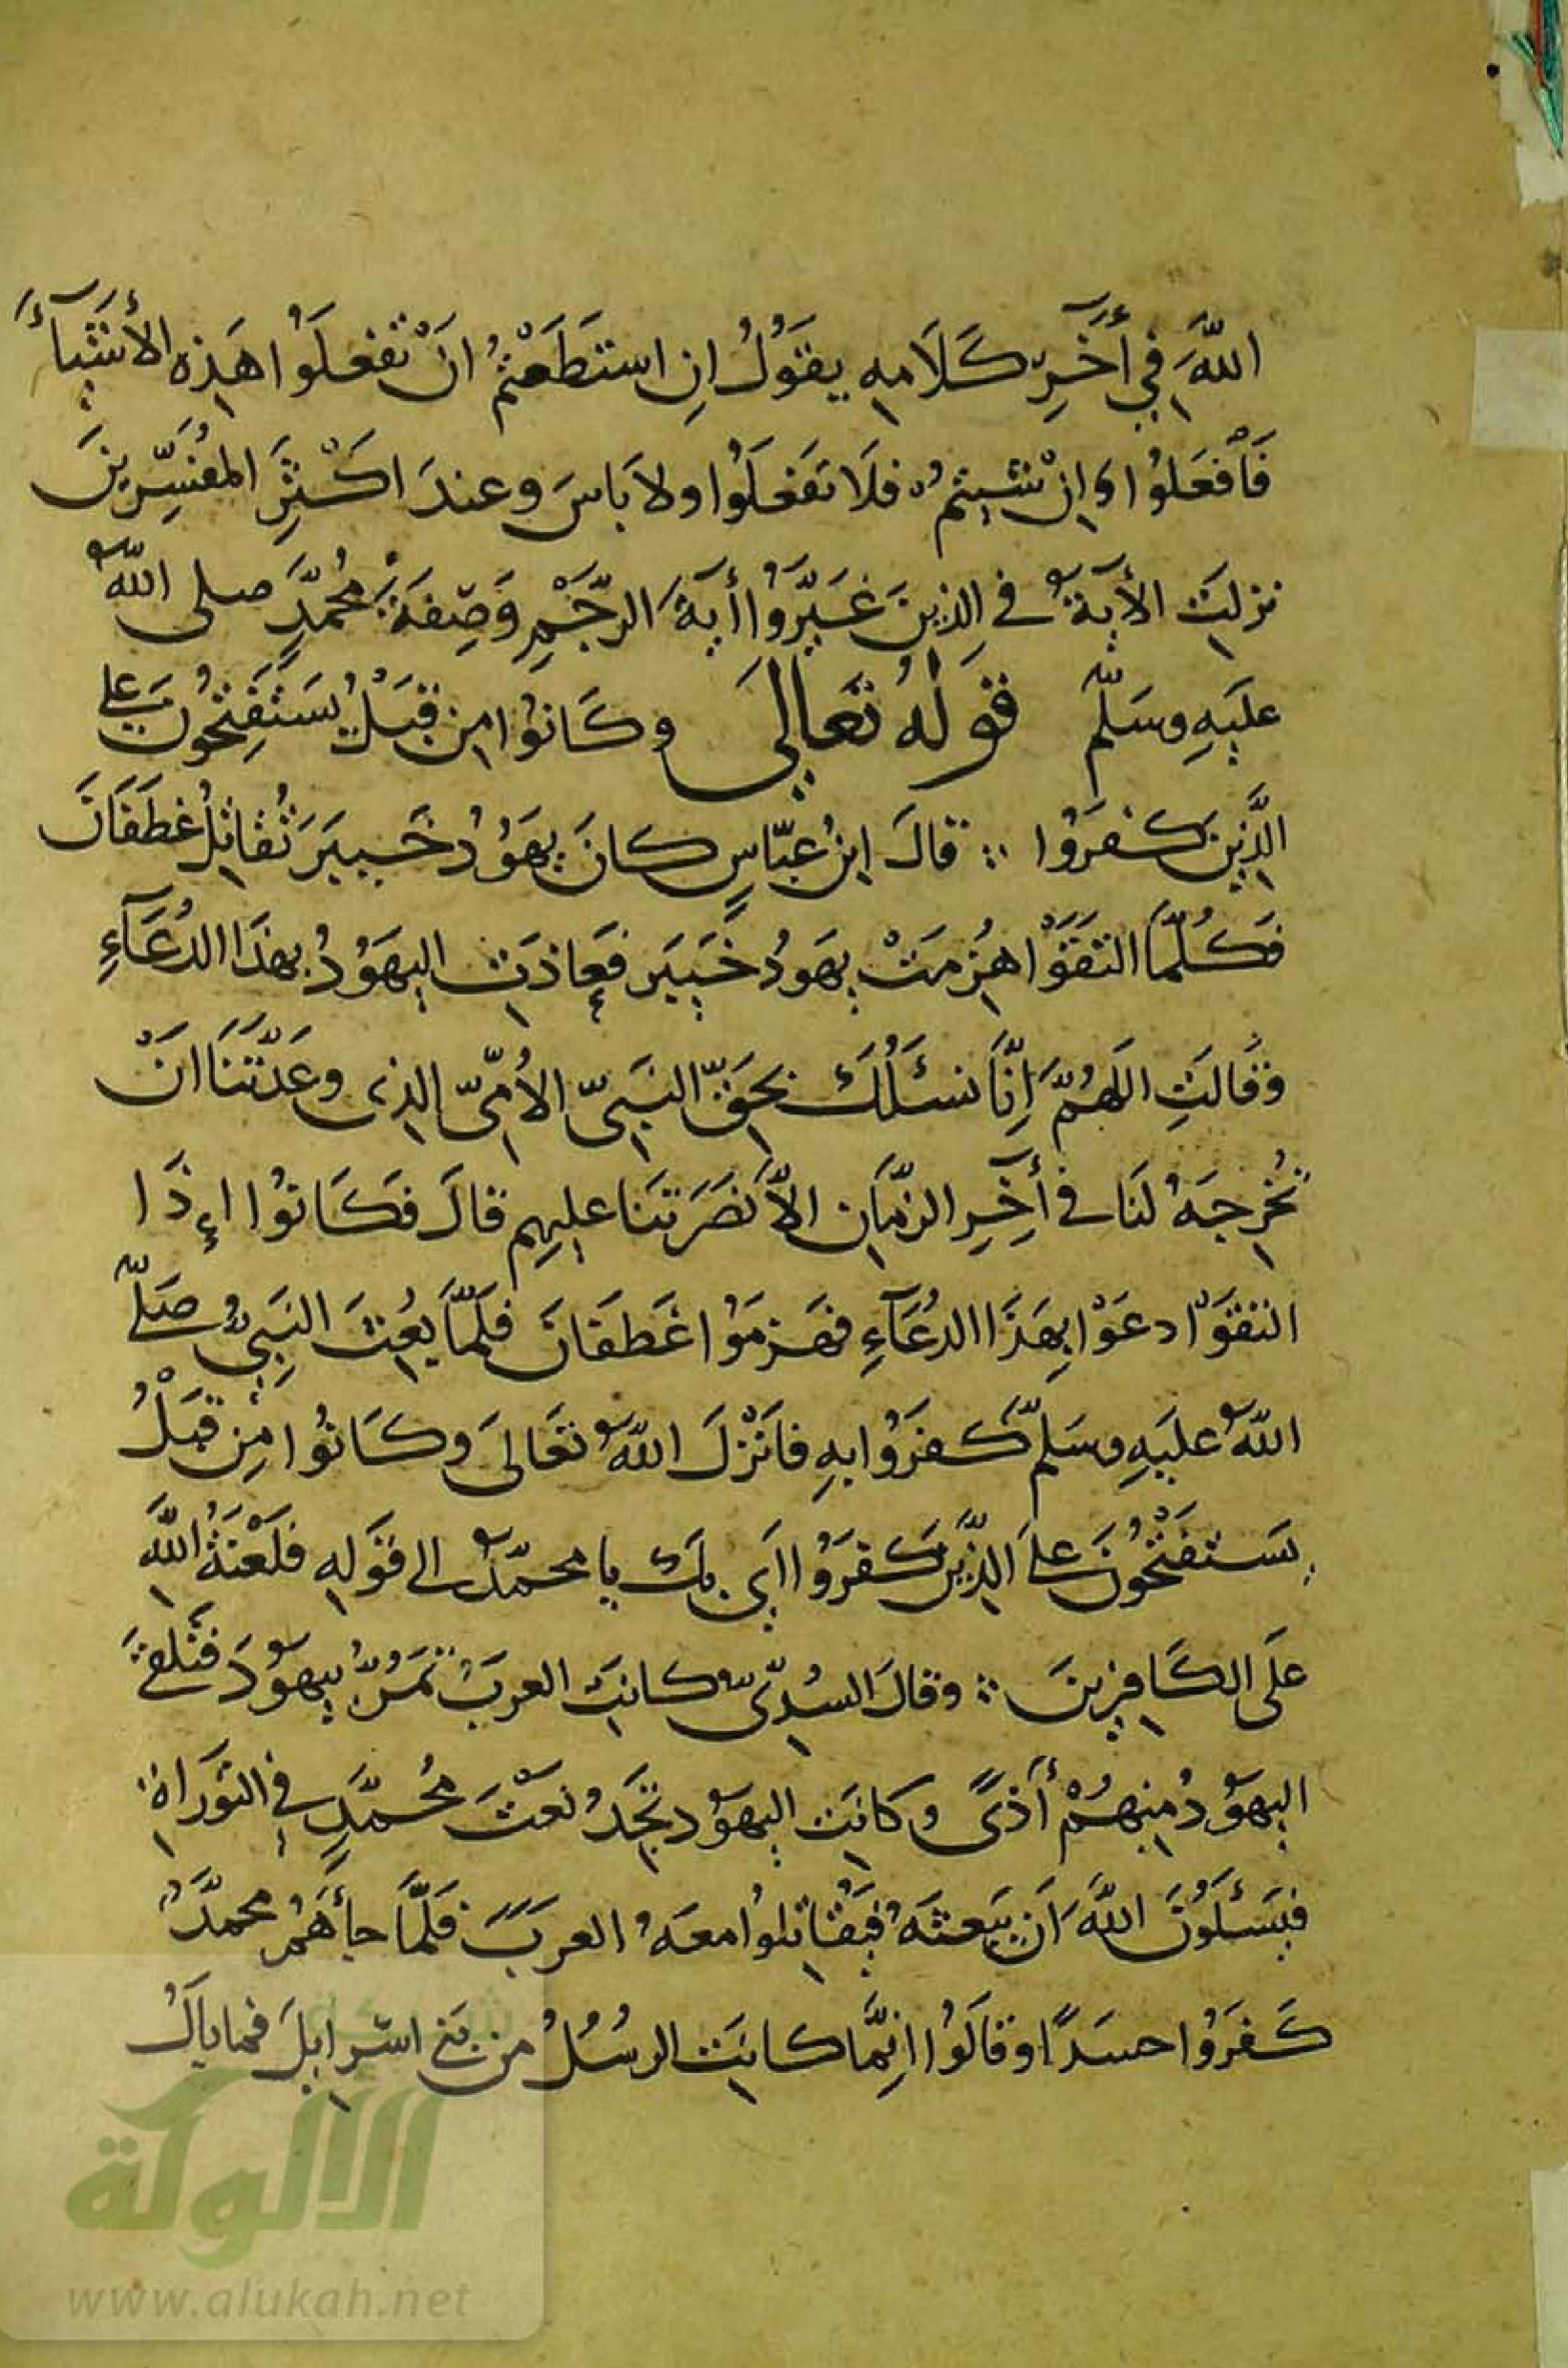 اللَّهَ فِي أَخِرِ كَلَامِهِ يَقُولُ اِنِ اسْتَطَعْتُمُ انْ تَفعلُوا هَذِهِ الأَشيَآءَ
فَافْعَلُوا وَإِنْ شِيتم فَلَا تَفْعَلُوا ولا بَاسَ وعندَ اكْثَرِ المفُسِّرِينَ
نزلِتَ الأَيَةُ في الذِينَ غَيَّرُوا أَيةَ الرَّجْمِ وَصِفَةَ مُحُمَّدٍ صلى اللهُ
علَيَهِ وسَلّم قَولهُ تَعَالِي وكَانوُا مِن قَبْلُ يَسَتَفِتحُونَ عَلى
الَّذِينَ كفرَوُا ؞ قالَ ابنُ عبّاسٍ كانَ يهَوُدُ خَيبَرَ تُقاتِلُ غَطَفَانَ
فَكُلَّمَا التَقَوْا هُزِمَتْ يهَودُ خَيبَرَ فعَاذَتِ اليهَوُدُ بهذَا الدُّعَآءِ
وقَالتِ اللهُمَّ إِنَّا نَسئَلُكَ بِحَقِّ النبَيِّ الأُمِّيِّ الذِى وعَدتَّنَا انَ
تُخرِجَهُ لنَا في أَخِرِ الزّمَانِ الَّا نَصَرتَنَا علَيهِم قالَ فكَانوُا اِذَا
التقَوَا دعَوْا بِهَذَا الدُّعَآءِ فهَزمَوُا غَطفَانَ فلَمَّا بعُثَ النبَيُّ صَلّى
اللهُ علَيَهِ وسَلمّ كفَرَوُا بهِ فانَزْلَ اللهُ تعَالىَ وكَانوُا مِن قَبْلُ
يسَتفتحُونَ علَى الذِّينَ كفرَوُا ايَ بِكَ يا محمّدُ الى قَوَلِهِ فلَعْنَةُ اللَّهِ
علَى الكَافِرِينَ ؞ وقالَ السُدّيُّ كانتِ العربُ تمَرُّ بِيهوَدَ فتَلقىَ
اليهوَدُ منِهُمْ أذَىً وكانتِ اليهوَد تجِدُ نعْتَ مُحُمَّدٍ فِي التوَرَاةِ
فيَسئَلوُنَ اللَّهَ اَن يبَعثَهُ فيَقُاتِلوُا معَهُ العربَ فلَمَّا جاَءَهُمْ محمدٌ
كَفرَوُا حسَداً وقاَلوُا انِمَّا كانتِ الرسُلُ من بَني اسرِايلَ فما بَالُ
شبكة
الألوكة
www.alukah.net